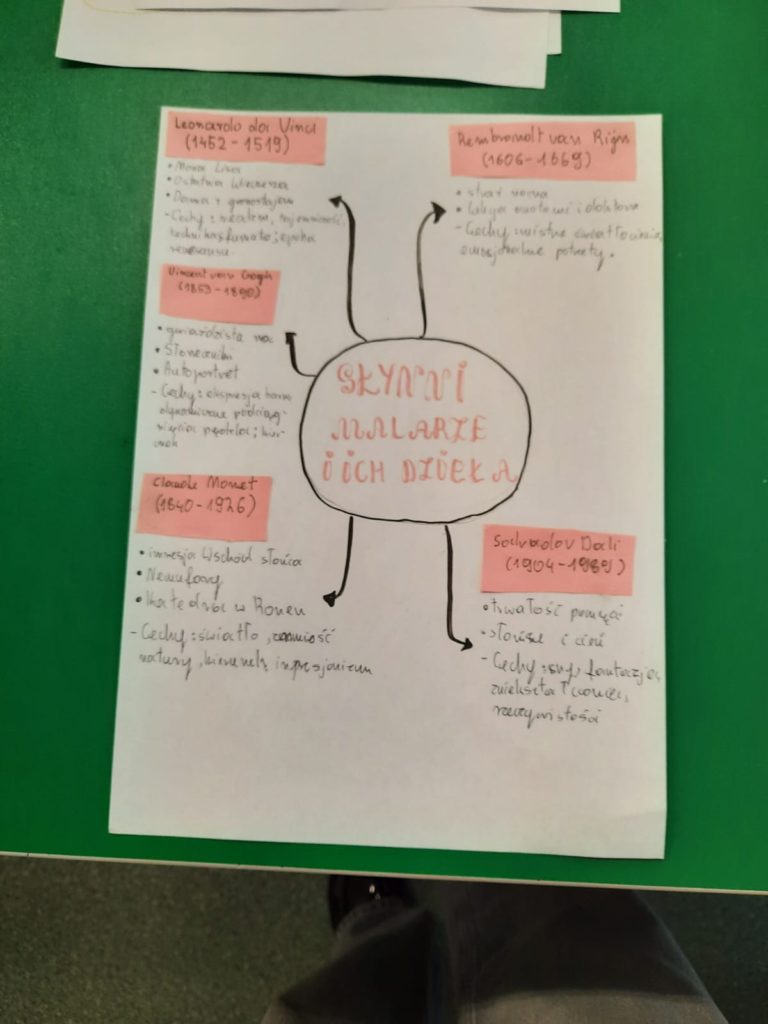 Leonardo da Vinci
(1452-1519)
• Mona Lisa
• Ostatnia Wieczerza
• Dama z gronostajem
- Cechy: realizm, tajemniczość,
technika sfumato; epoka
renesansu
Rembrandt van Rijn
(1606-1669)
• straż nocna
• Lekcja anatomii doktora
- Cechy mistrz światłocienia,
emocjonalne portrety.
Vincent van Gogh
(1853-1890)
• gwiaździsta noc
• Słoneczniki
• Autoportret
- Cechy: ekspresja barw
dynamiczne pociąg-
nięcia pędzla;
SŁYNNI
MALARZE
I ICH DZIEŁA
Claude Monet
(1840-1926)
• impresja Wschód słońca
• Nenufary
• Katedra w Rouen
- Cechy: światło, natury, kierunek impresjonizm
Salvador Dali
(1904-1989)
• trwałość pamięci
• słońce i cień
- Cechy: sny, fantazja,
zniekształcanie,
rzeczywistości